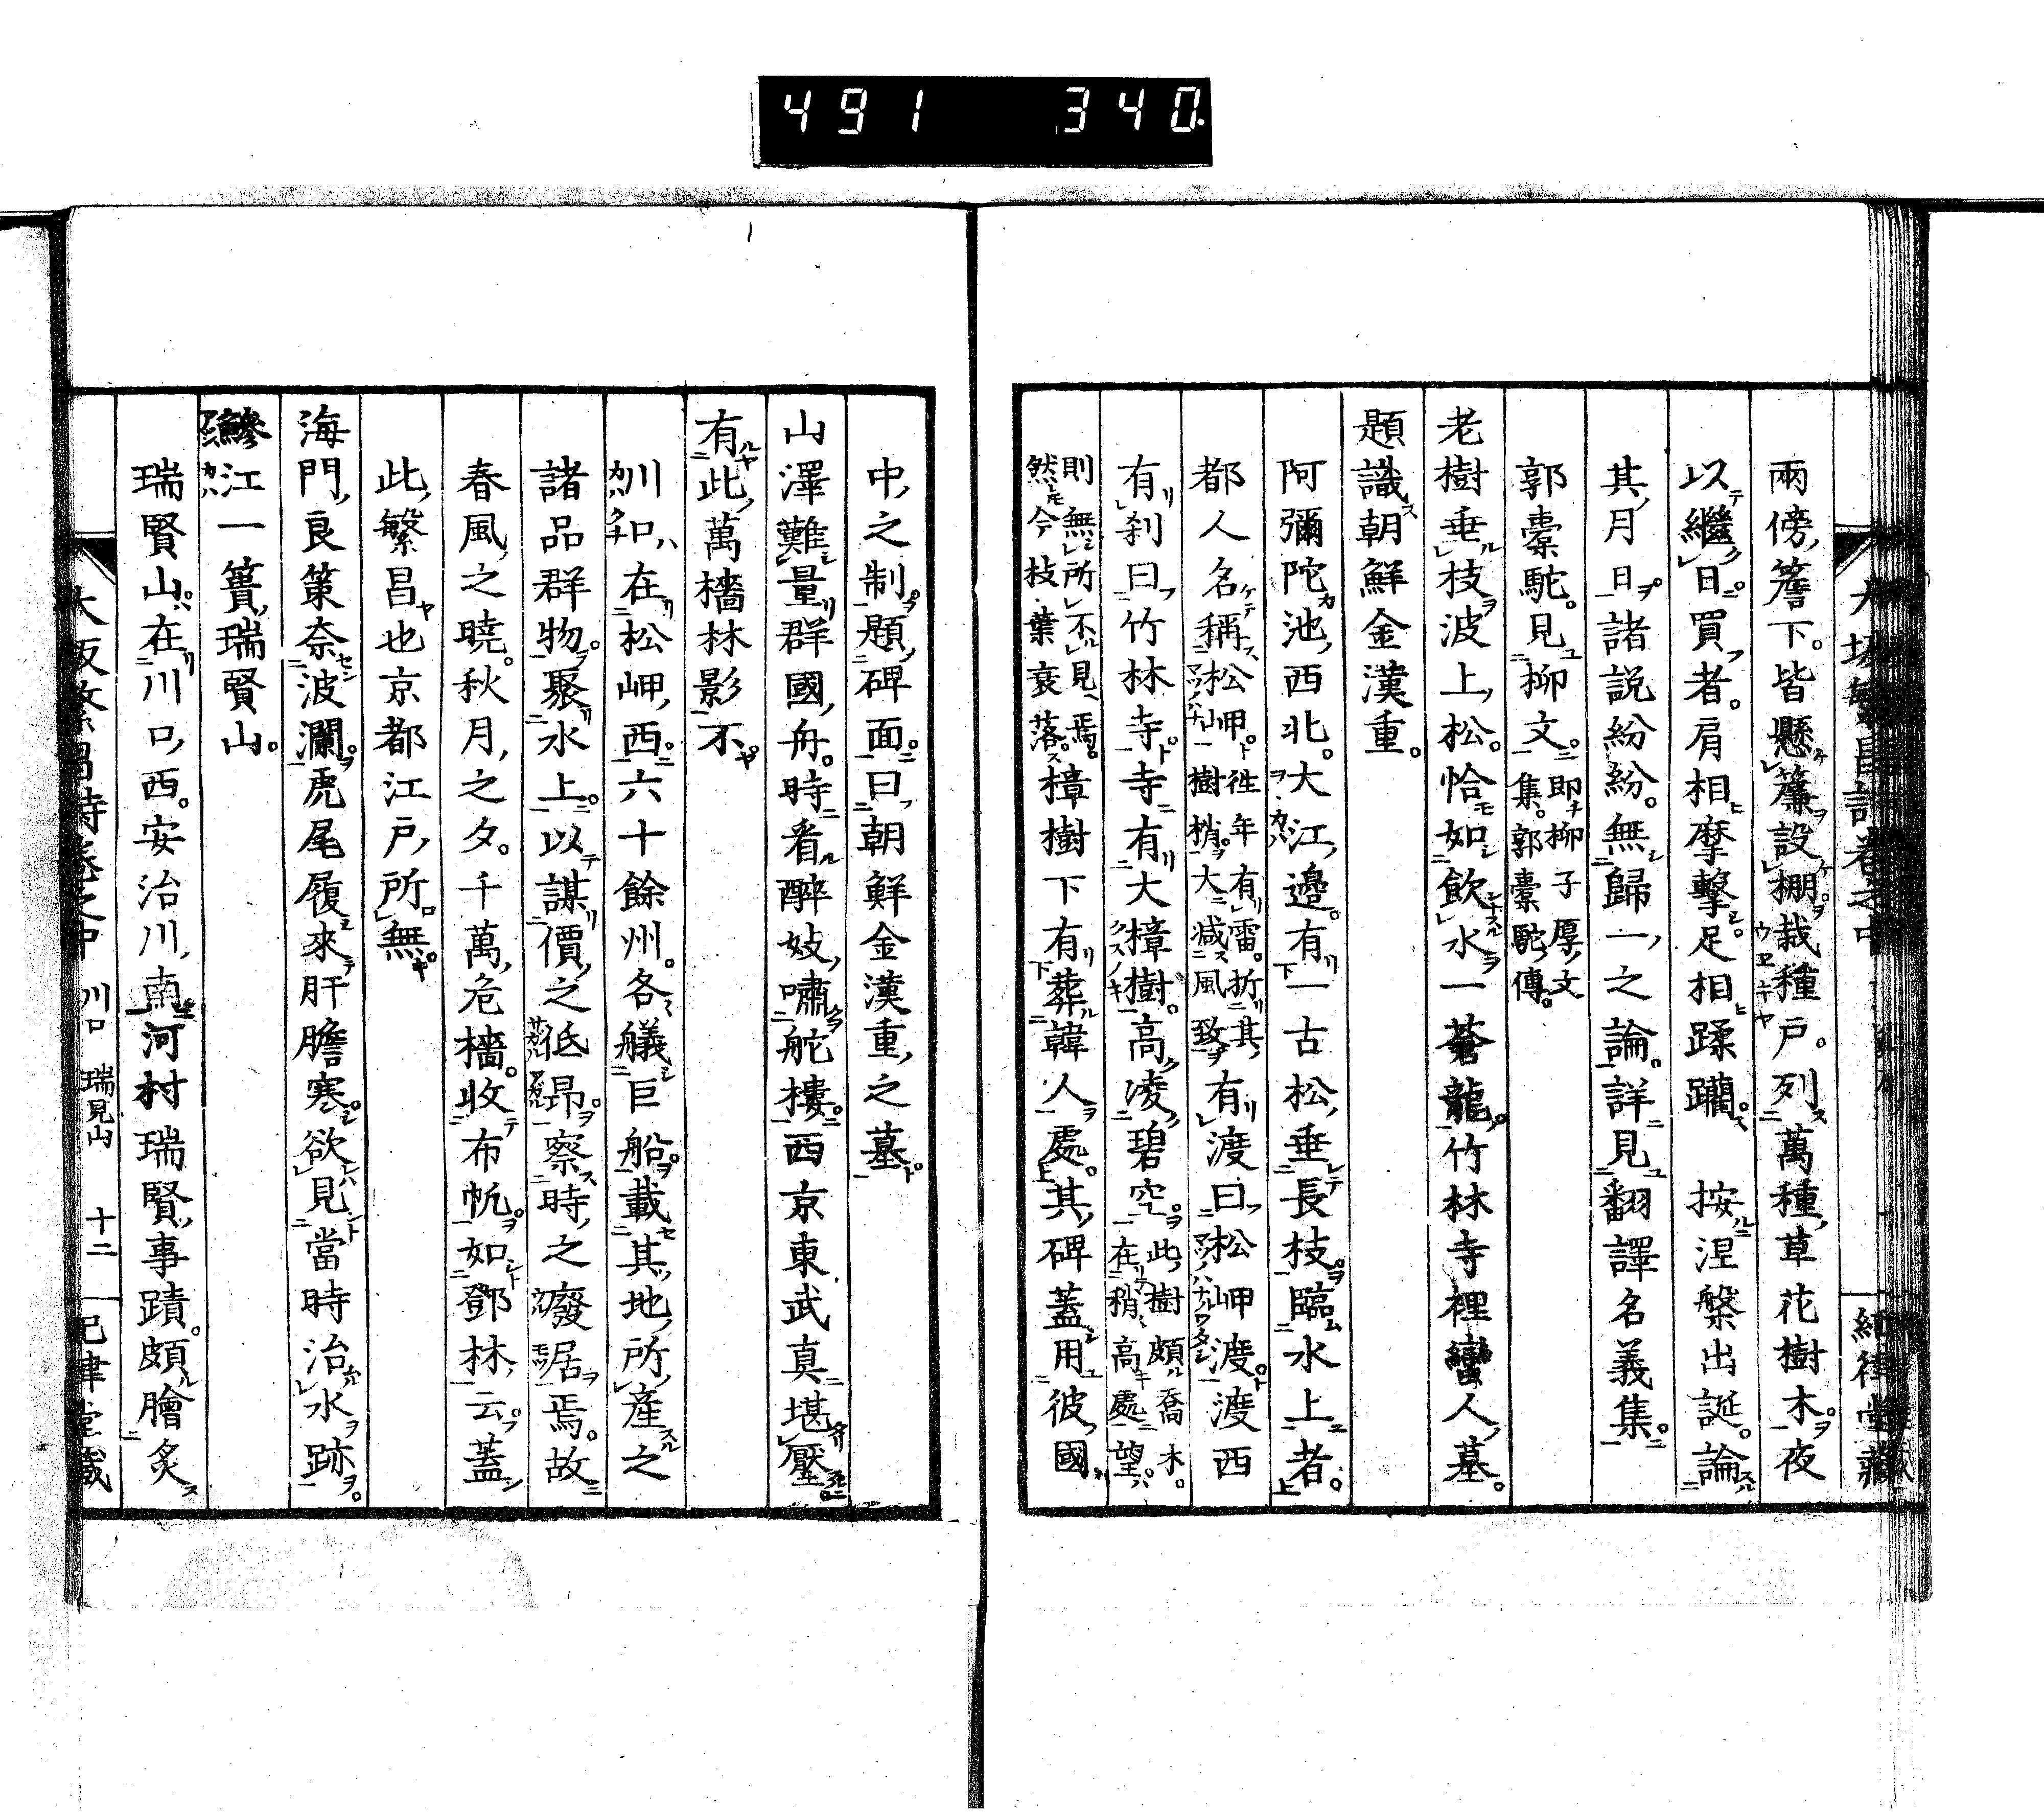 491 340
大坂繁昌詩卷之中
兩傍簷下皆懸簾設棚栽種戶列萬種草花樹木夜
以繼日買者肩相摩擊足相蹂躪 按涅槃出誕論
其月日諸說紛紛無歸一之論詳見翻譯名義集
郭橐駝見柳文集即柳子厚文郭橐駝傳
老樹垂枝波上松恰如飲水一蒼龍竹林寺裡蠻人墓
題識朝鮮金漢重
阿彌陀池西北大江邊有一古松垂長枝臨水上者
都人名稱松岬往年有雷折其一樹梢大減風致有渡曰松岬渡渡西
有刹曰竹林寺寺有大樟樹高凌碧空此樹頗喬木在稍高處望
則無所不見焉然今枝葉衰落樟樹下有葬韓人處其碑蓋用彼國
中之制題碑面曰朝鮮金漢重之墓
山澤難量群國舟時看醉妓嘯舵樓西京東武真堪壓
有此萬檣林影不
川口在松岬西六十餘州各艤巨船載其地所產之
諸品群物聚水上以謀價之低昂察時之廢居焉故
春風之曉秋月之夕千萬危檣收布帆如鄧林云蓋
此繁昌也京都江戶所無
海門良策奈波瀾虎尾履來肝膽寒欲見當時治水跡
鰺江一簣瑞賢山
瑞賢山在川口西安治川南河村瑞賢事蹟頗膾炙
大坂繁昌詩卷之中 川口 瑞見山 十二